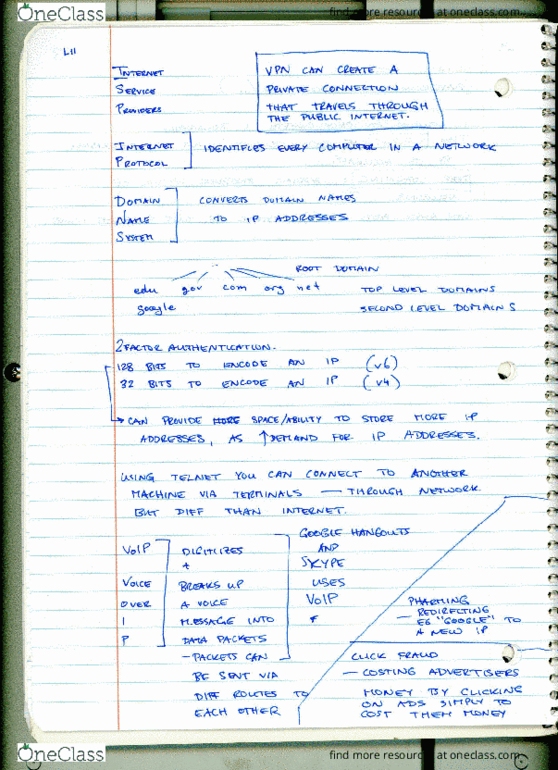 OneClass
find more resources at oneclass.com
L11
INTERNET
SERVICE
PROVIDERS
VPN CAN CREATE A
PRIVATE CONNECTION
THAT TRAVELS THROUGH
THE PUBLIC INTERNET.
INTERNET
PROTOCOL
IDENTIFIES EVERY COMPUTER IN A NETWORK
DOMAIN
NAME
SYSTEM
CONVERTS DOMAIN NAMES
TO IP ADDRESSES
ROOT DOMAIN
edu gov com org net TOP LEVEL DOMAINS
google SECOND LEVEL DOMAINS
2 FACTOR AUTHENTICATION.
128 BITS TO ENCODE AN IP (v6)
32 BITS TO ENCODE AN IP (v4)
→ CAN PROVIDE MORE SPACE/ABILITY TO STORE MORE IP
ADDRESSES, AS ↑DEMAND FOR IP ADDRESSES.
USING TELNET YOU CAN CONNECT TO ANOTHER
MACHINE VIA TERMINALS — THROUGH NETWORK
BUT DIFF THAN INTERNET.
VoIP
VOICE
OVER
I
P
DIGITIZES
+
BREAKS UP
A VOICE
MESSAGE INTO
DATA PACKETS
- PACKETS CAN
BE SENT VIA
DIFF ROUTES TO
EACH OTHER
GOOGLE HANGOUTS
AND
SKYPE
USES
VOIP
PHARMING
- REDIRECTING
EG "GOOGLE" TO
A NEW IP
CLICK FRAUD
- COSTING ADVERTISERS
MONEY BY CLICKING
ON ADS SIMPLY TO
COST THEM MONEY
OneClass
find more resources at oneclass.com